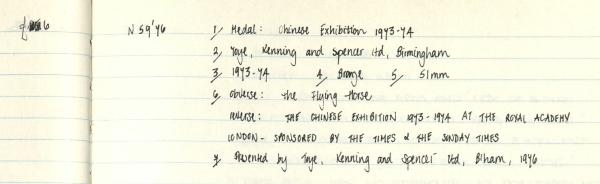 6 N 59'76 1/ Medal: Chinese Exhibition 1973-74
2/ Toye, Kenning and Spencer Ltd, Birmingham
3/ 1973-74 4/ Bronze 5/ 51mm
6/ Obverse: The Flying Horse
Reverse: THE CHINESE EXHIBITION 1973-1974 AT THE ROYAL ACADEMY
LONDON - SPONSORED BY THE TIMES & THE SUNDAY TIMES
7/ Presented by Toye, Kenning and Spencer Ltd, B'ham, 1976